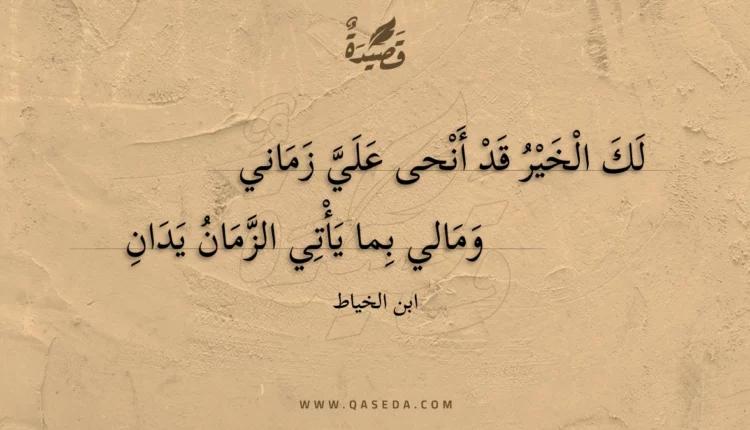 قَصِيْدَةٌ
لَكَ الْخَيْرُ قَدْ أَنْحى عَلَيَّ زَمَاني
وَمَالي بِما يَأْتِي الزَّمَانُ يَدَانِ
ابن الخياط
WWW.QASEDA.COM